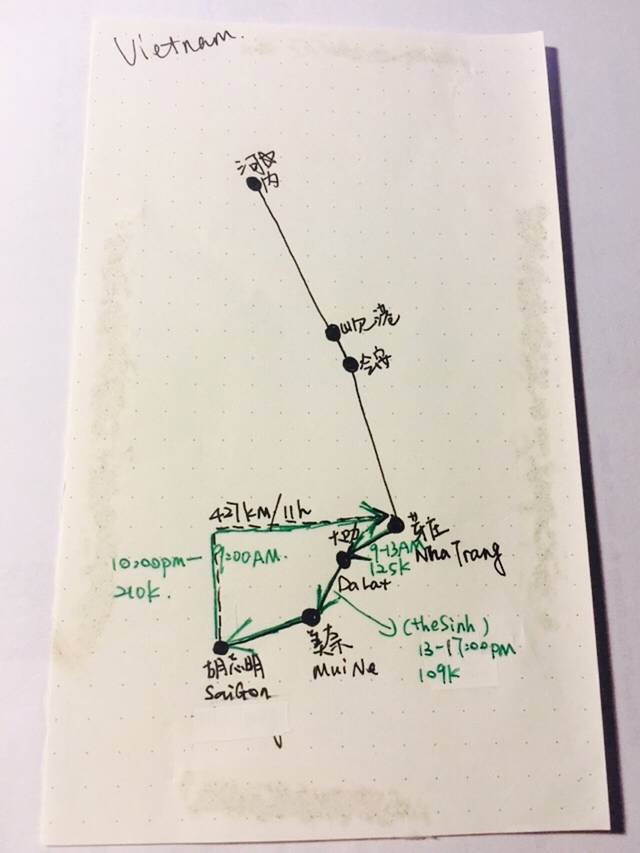 Vietnam.
河
内
岘港
会安
427km/11h
芽庄
10:00pm—9:00AM.
210K.
大叻
9-13AM
125K
Nha Trang
DaLat
(theSinh)
13-17:00pm
109K
美奈
Mui Ne
胡志明
SaiGon